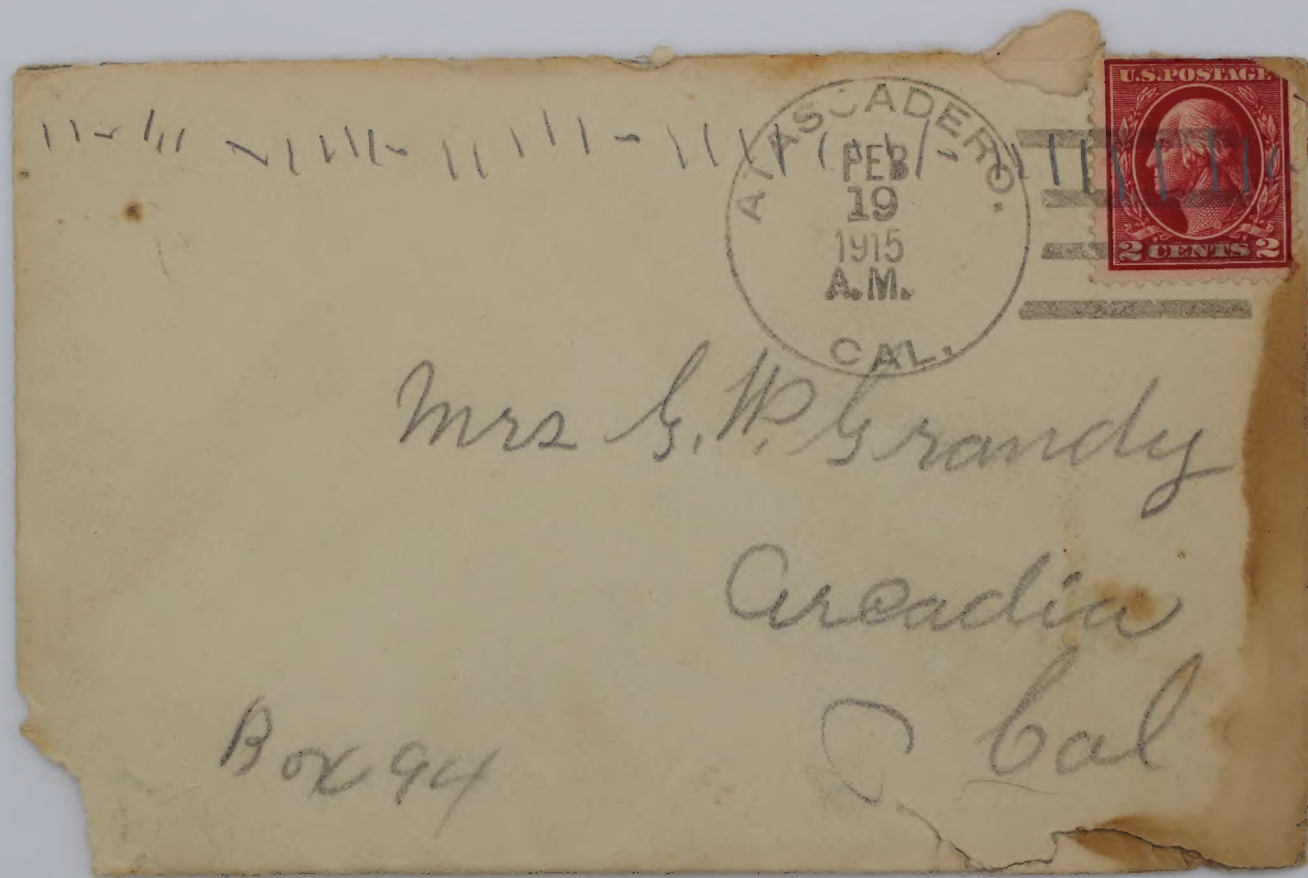 ATASCADERO.
FEB
19
1915
A.M.
CAL.
U.S. POSTAGE
2 CENTS 2
Mrs G. W. Grandy
Arcadia
Cal
Box 94